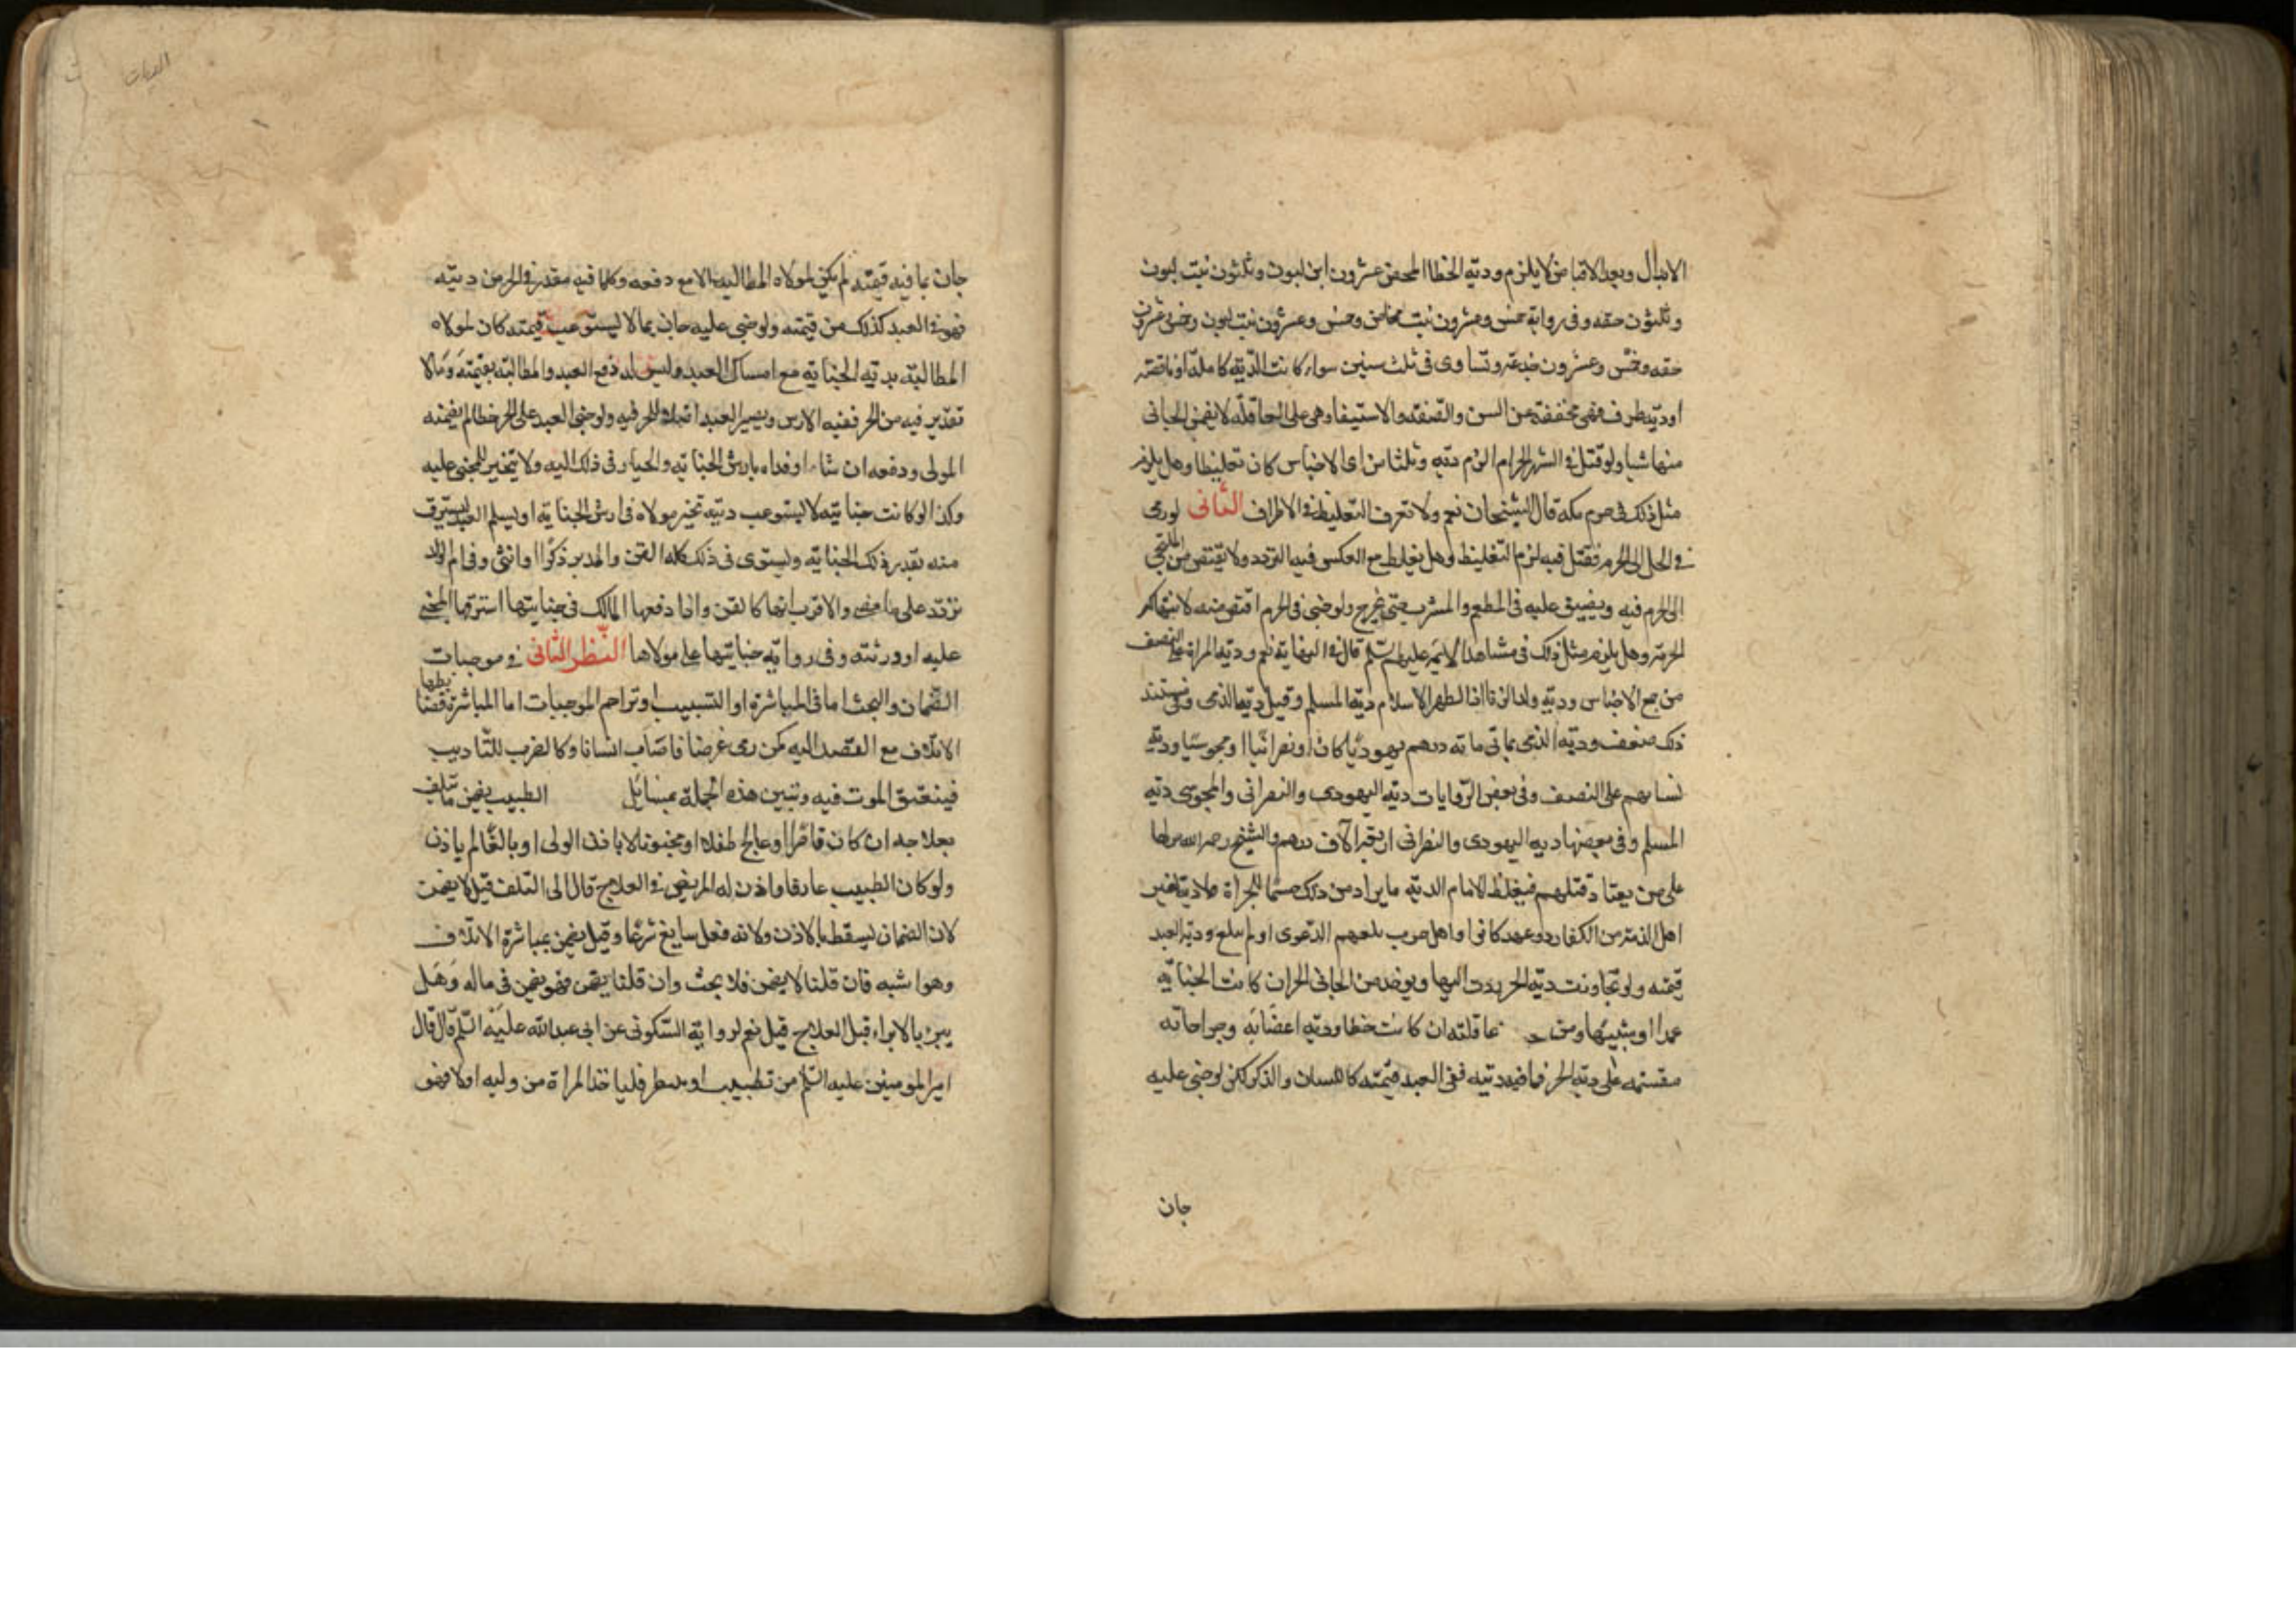 الابدال وبعد الاقباض لا يلزم ودية الخطا المحض عشرون ابن لبون وثلثون بنت لبون
وثلثون حقه وفى رواية خمس وعشرون بنت مخاض وخمس وعشرون بنت لبون وخمس وعشرون
حقه وخمس وعشرون جذعة وتستاوى فى ثلث سنين سواء كانت الدية كاملة او ناقصة
او دية طرف فهى مخففة عن السن والصفة والاستيفا وهى على العاقلة لا يضمن الجانى
منها شيا ولو قتل فى الشهر الحرام الزم دية وثلثا من اى الاجناس كان تغليظا وهل يلزم
مثل ذلك فى حرم مكة قال الشيخان نعم ولا نعرف التغليظ فى الاطراف الثانى لو رمى
فى الحل الى الحرم فقتل فيه لزم التغليظ وهل يغلظ مع العكس فيه التردد ولا يقتص من الملتجى
الى الحرم فيه ويضيق عليه فى المطعم والمشرب حتى يخرج ولو جنى فى الحرم اقتص منه لانتهاكه
الحرمة وهل يلزم مثل ذلك فى مشاهد الايمة عليهم السلم قال فى النهاية نعم ودية المراة على النصف
من جميع الاجناس ودية ولد الزنا اذا اظهر الاسلام دية المسلم وقيل دية الذمى وفى مستند
ذلك ضعف ودية الذمى ثمانى ماية درهم يهوديا كان او نصرانيا او مجوسيا ودية
نسايهم على النصف وفى بعض الروايات دية اليهودى والنصرانى والمجوسى دية
المسلم وفى بعضها دية اليهودى والنصرانى اربعة الاف درهم والشيخ رحمه الله نزلها
على من يعتاد قتلهم فيغلظ الامام الدية ما يراد من ذلك حسما للجراة ولا دية لغير
اهل الذمة من الكفار ذو عهد كانوا او اهل حرب بلغهم الدعوى او لم تبلغ ودية العبد
قيمته ولو تجاوزت دية الحر ردت اليها ويوخذ من الجانى الحر ان كانت الجناية
عمدا او شبيها ومن عاقلته ان كانت خطا ودية اعضائه وجراحاته
مقسمة على دية الحر فما فيه ديته ففى العبد قيمته كاللسان والذكر لكن لو جنى عليه
جان
الديات
جان بما فيه قيمته لم يكن لمولاه المطالبة الا مع دفعه وكلما فيه مقدر فى الحر من ديته
فهو فى العبد كذلك من قيمته ولو جنى عليه جان بما لا يستوعب قيمته كان لمولاه
المطالبة بدية الجناية مع امساك العبد وليس له دفع العبد والمطالبة بقيمته وما لا
تقدير فيه من الحر ففيه الارش ويصير العبد اصلا للحر فيه ولو جنى العبد على الحر خطا لم يضمنه
المولى ودفعه ان شاء او فداه بارش الجناية والخيار فى ذلك اليه ولا يتخير المجنى عليه
وكذا لو كانت جنايته لا يستوعب ديته تخير مولاه فى ارش الجناية او يسلم العبد ليسترق
منه بقدر ذلك الجناية ويستوى فى ذلك كله القن والمدبر ذكرا او انثى وفى ام الولد
تردد على ما مضى والاقرب انها كالقن واذا دفعها المالك فى جنايتها استرقها المجنى
عليه او ورثته وفى رواية جنايتها على مولاها النظر الثانى فى موجبات
الضمان والبحث اما فى المباشرة او التسبيب او تزاحم الموجبات اما المباشرة فضابطها
الاتلاف مع القصد اليه كمن رمى غرضا فاصاب انسانا وكالضرب للتاديب
فيتفق الموت فيه وتبين هذه الجملة بمسائل الطبيب يضمن ما يتلف
بعلاجه ان كان قاصرا او عالج طفلا او مجنونا لا باذن الولى او بالغا لم ياذن
ولو كان الطبيب عارفا واذن له المريض فى العلاج قال الى التلف قيل لا يضمن
لان الضمان يسقط بالاذن ولانه فعل سايغ شرعا وقيل يضمن بمباشرة الاتلاف
وهو اشبه فان قلنا لا يضمن فلا بحث وان قلنا يضمن فهو يضمن فى ماله وهل
يبرء بالابراء قبل العلاج قيل نعم لرواية السكونى عن ابى عبدالله عليه السلم قال قال
امير المومنين عليه السلم من تطبب او تبيطر فلياخذ المراة من وليه او لا فهو